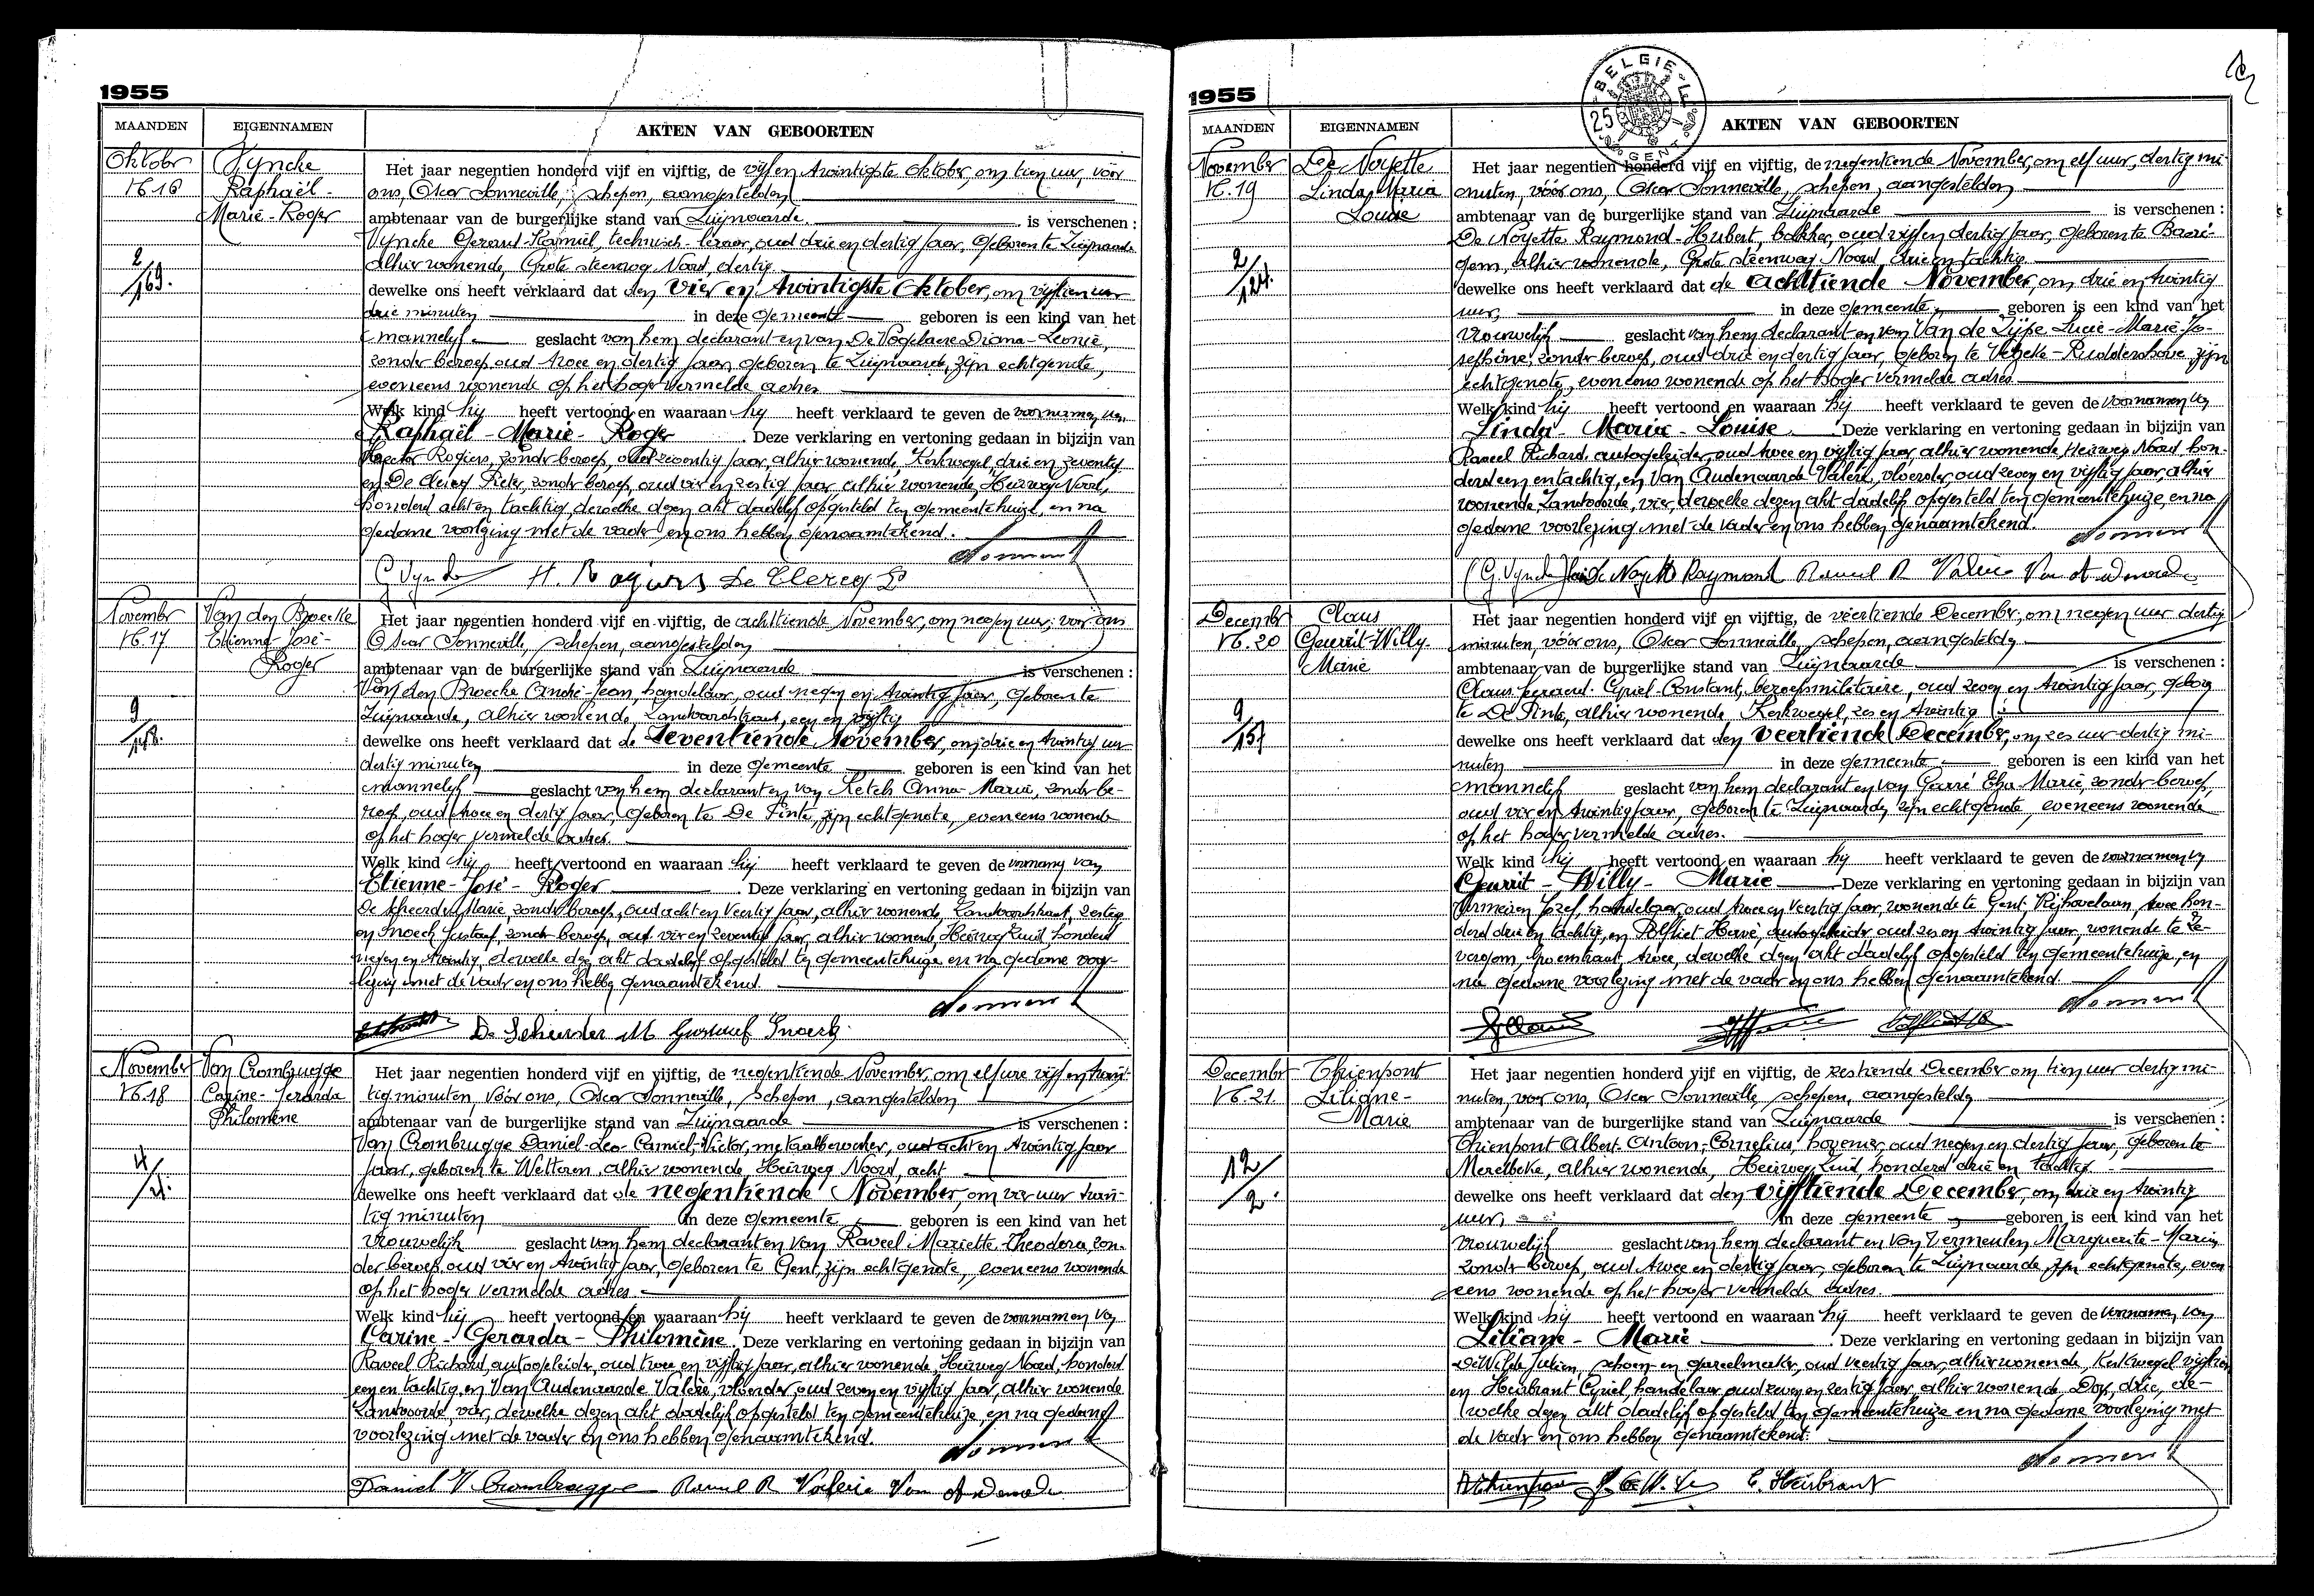 1955
MAANDEN EIGENNAMEN AKTEN VAN GEBOORTEN
Oktober
N. 16
Vyncke
Raphaël-
Marie-Roger
2/169.
Het jaar negentien honderd vijf en vijftig, de vijf en twintigste Oktober, om tien uur, vóór
ons, Oscar Sonneville, schepen, aangestelden
ambtenaar van de burgerlijke stand van Zwijnaarde is verschenen :
Vyncke Gerard-Kamiel, technisch-leraar, oud drie en dertig jaar, geboren te Zwijnaarde
alhier wonende, Grote steenweg Noord, dertig
dewelke ons heeft verklaard dat den vier en twintigste Oktober, om vijftien uur
drie minuten in deze gemeente geboren is een kind van het
mannelijk geslacht van hem declarant en van De Vogelaere Diana-Leonie,
zonder beroep, oud twee en dertig jaar, geboren te Zwijnaarde, zijn echtgenote,
eveneens wonende op het hoger vermelde adres
Welk kind hij heeft vertoond en waaraan hij heeft verklaard te geven de voornamen van
Raphaël-Marie-Roger. Deze verklaring en vertoning gedaan in bijzijn van
Hector Rogiers, zonder beroep, oud zeventig jaar, alhier wonende, Kerkwegel, drie en zeventig
en De Clercq Pieter, zonder beroep, oud vier en zestig jaar, alhier wonende, Heirweg Noord,
honderd acht en tachtig, dewelke dezen akt dadelijk opgesteld ten gemeentehuize, en na
gedane voorlezing met de vader en ons hebben genaamtekend.
G Vyncke H. Rogiers De Clercq P
November
N. 17
Van den Broecke
Etienne-José-
Roger
9/148.
Het jaar negentien honderd vijf en vijftig, de achttiende November, om negen uur, vóór ons
Oscar Sonneville, schepen, aangestelden
ambtenaar van de burgerlijke stand van Zwijnaarde is verschenen :
Van den Broecke André-Jean, handelaar, oud negen en twintig jaar, geboren te
Zwijnaarde, alhier wonende, Landvoordstraat, een en vijftig
dewelke ons heeft verklaard dat de Zeventiende November, om drie en twintig uur
dertig minuten in deze gemeente geboren is een kind van het
mannelijk geslacht van hem declarant en van Ketels Anna-Maria, zonder be-
roep, oud twee en dertig jaar, geboren te De Pinte, zijn echtgenote, eveneens wonende
op het hoger vermelde adres.
Welk kind hij heeft vertoond en waaraan hij heeft verklaard te geven de voornamen van
Etienne-José-Roger. Deze verklaring en vertoning gedaan in bijzijn van
De Scheerder Marie, zonder beroep, oud acht en veertig jaar, alhier wonende, Landvoordstraat, zestig
en Snoeck Gustaaf, zonder beroep, oud vier en zeventig jaar, alhier wonend, Heirweg Zuid, honderd
negen en twintig, dewelke dezen akt dadelijk opgesteld ten gemeentehuize en na gedane voor-
lezing met de vader en ons hebben genaamtekend.
De Scheerder M Gustaaf Snoeck
November
N. 18
Van Crombrugge
Carine-Gerarda
Philomène
4/21.
Het jaar negentien honderd vijf en vijftig, de negentiende November, om elf ure vijf en twin-
tig minuten, vóór ons, Oscar Sonneville, schepen, aangestelden
ambtenaar van de burgerlijke stand van Zwijnaarde is verschenen :
Van Crombrugge Daniel-Leo-Camiel-Victor, metaalbewerker, oud acht en twintig jaar
jaar, geboren te Wetteren, alhier wonende, Heirweg Noord, acht
dewelke ons heeft verklaard dat de negentiende November, om vier uur twin-
tig minuten in deze gemeente geboren is een kind van het
vrouwelijk geslacht van hem declarant en van Raveel Mariette-Theodora, zon-
der beroep, oud vier en twintig jaar, geboren te Gent, zijn echtgenote, eveneens wonende
op het hoger vermelde adres.
Welk kind hij heeft vertoond en waaraan hij heeft verklaard te geven de voornamen van
Carine-Gerarda-Philomène. Deze verklaring en vertoning gedaan in bijzijn van
Raveel Richard, autogeleider, oud twee en vijftig jaar, alhier wonende, Heirweg Noord, honderd
een en tachtig, en Van Audenaarde Valère, vloerder, oud zeven en vijftig jaar, alhier wonende
Landvoorde, vier, dewelke dezen akt dadelijk opgesteld ten gemeentehuize, en na gedane
voorlezing met de vader en ons hebben genaamtekend.
Daniel V Crombrugge Raveel R Valère Van Audenaarde
1955
BELGIE
25
GENT
MAANDEN EIGENNAMEN AKTEN VAN GEBOORTEN
November
N. 19
De Noyette
Linda, Maria
Louise
2/124.
Het jaar negentien honderd vijf en vijftig, de negentiende November, om elf uur, dertig mi-
nuten, vóór ons, Oscar Sonneville, schepen, aangestelden
ambtenaar van de burgerlijke stand van Zwijnaarde is verschenen :
De Noyette Raymond-Hubert, bakker, oud vijf en dertig jaar, geboren te Baare-
gem, alhier wonende, Grote steenweg Noord, drie en tachtig
dewelke ons heeft verklaard dat de achttiende November, om drie en twintig
uur, in deze gemeente, geboren is een kind van het
vrouwelijk geslacht van hem declarant en van Van de Zijpe Lucie-Marie-Jo-
sephine, zonder beroep, oud drie en dertig jaar, geboren te Velzeke-Ruddershove, zijn
echtgenote, eveneens wonende op het hoger vermelde adres
Welk kind hij heeft vertoond en waaraan hij heeft verklaard te geven de voornamen van
Linda-Maria-Louise. Deze verklaring en vertoning gedaan in bijzijn van
Raveel Richard, autogeleider, oud twee en vijftig jaar, alhier wonende, Heirweg Noord hon-
derd een en tachtig, en Van Audenaarde Valère, vloerder, oud zeven en vijftig jaar, alhier
wonende Landvoorde, vier, dewelke dezen akt dadelijk opgesteld ten gemeentehuize, en na
gedane voorlezing met de vader en ons hebben genaamtekend.
(G. Vyncke) De Noyette Raymond Raveel R Valère Van Audenaarde
December
N. 20
Claus
Geurrit-Willy-
Marie
9/157
Het jaar negentien honderd vijf en vijftig, de veertiende December, om negen uur dertig
minuten, vóór ons, Oscar Sonneville, schepen, aangestelden
ambtenaar van de burgerlijke stand van Zwijnaarde is verschenen :
Claus Gerard-Cyriel-Constant, beroepsmilitaire, oud zeven en twintig jaar, geboren
te De Pinte, alhier wonende, Kerkwegel, zes en twintig
dewelke ons heeft verklaard dat den veertiende December, om zes uur dertig mi-
nuten in deze gemeente geboren is een kind van het
mannelijk geslacht van hem declarant en van Gerré Elza-Marie, zonder beroep,
oud vier en twintig jaar, geboren te Zwijnaarde, zijn echtgenote, eveneens wonende
op het hoger vermelde adres.
Welk kind hij heeft vertoond en waaraan hij heeft verklaard te geven de voornamen van
Geurrit-Willy-Marie Deze verklaring en vertoning gedaan in bijzijn van
Vermeiren Jozef, handelaar, oud twee en veertig jaar, wonende te Gent, Rijhovelaan, twee hon-
derd drie en tachtig, en Polfliet Hervé, autogeleider oud zes en twintig jaar, wonende te Ze-
vergem, Groenstraat, twee, dewelke dezen akt dadelijk opgesteld ten gemeentehuize, en
na gedane voorlezing met de vader en ons hebben genaamtekend.
December
N. 21.
Thienpont
Liliane-
Marie
12/2.
Het jaar negentien honderd vijf en vijftig, de zestiende December om tien uur dertig mi-
nuten, vóór ons, Oscar Sonneville, schepen, aangestelden
ambtenaar van de burgerlijke stand van Zwijnaarde is verschenen :
Thienpont Albert-Antoon-Cornelius, hovenier, oud negen en dertig jaar, geboren te
Merelbeke, alhier wonende, Heirweg Zuid, honderd drie en tachtig.
dewelke ons heeft verklaard dat den vijftiende December, om drie en twintig
uur, in deze gemeente, geboren is een kind van het
vrouwelijk geslacht van hem declarant en van Vermeulen Marguerite-Maria
zonder beroep, oud twee en dertig jaar, geboren te Zwijnaarde, zijn echtgenote, even
eens wonende op het hoger vermelde adres.
Welk kind hij heeft vertoond en waaraan hij heeft verklaard te geven de voornamen van
Liliane-Marie. Deze verklaring en vertoning gedaan in bijzijn van
De Wilde Julien, schoen en gareelmaker, oud veertig jaar, alhier wonende, Kerkwegel vijftien
en Heirbrant Cyriel handelaar oud zeven en zestig jaar, alhier wonende Dorp, drie, de-
welke dezen akt dadelijk opgesteld ten gemeentehuize en na gedane voorlezing met
de vader en ons hebben genaamtekend.
AThienpont C. Heirbrant